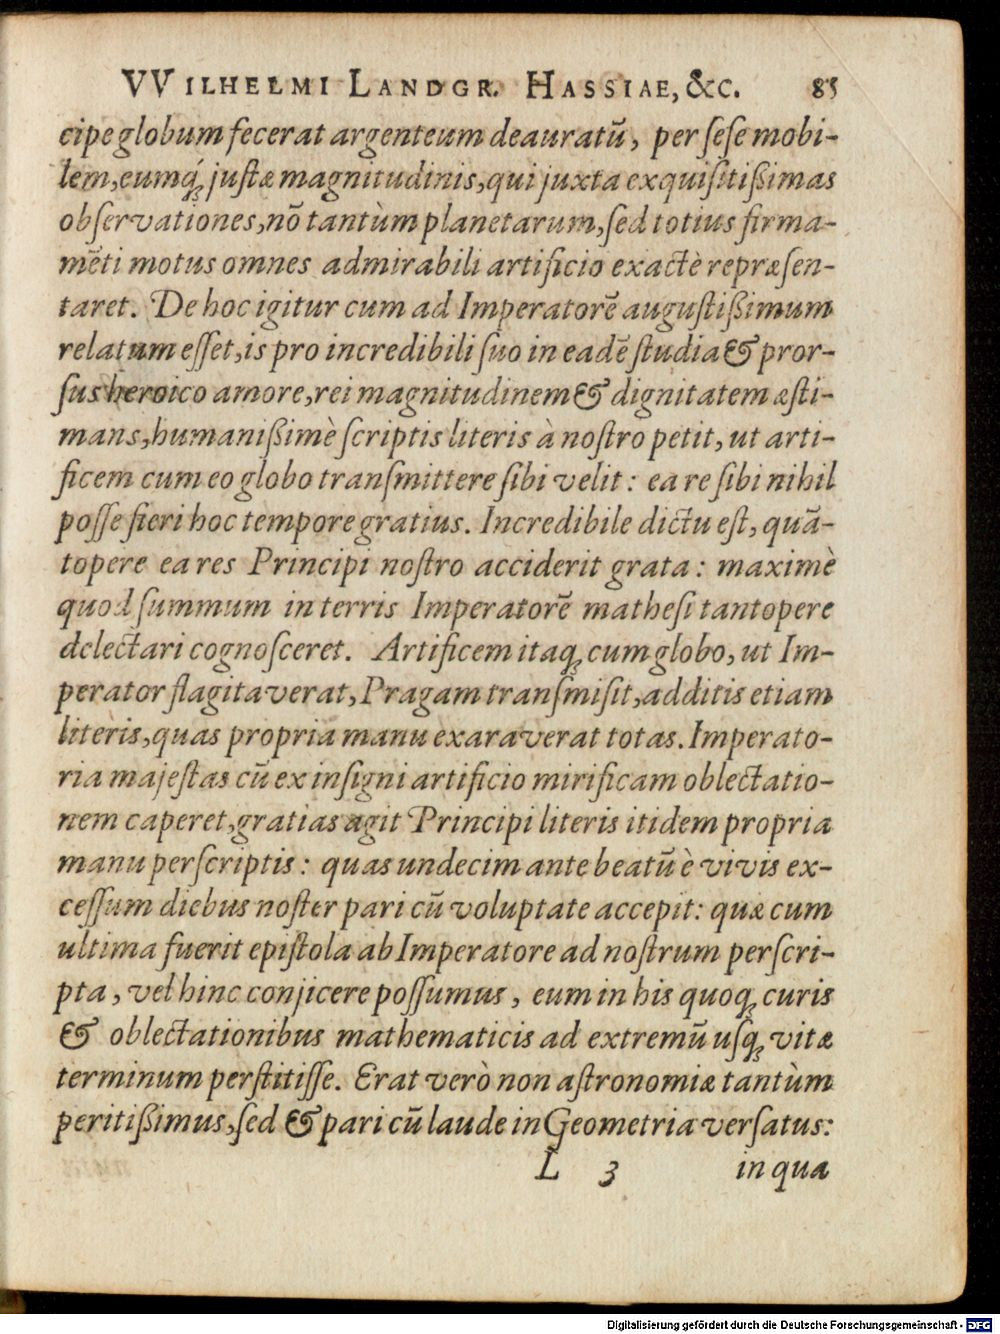 VVILHELMI LANDGR. HASSIAE, &C. 85
cipe globum fecerat argenteum deauratū, per ſeſe mobi-
lem, eumq́ꝫ juſtæ magnitudinis, qui juxta exquiſitißimas
obſervationes, nō tantùm planetarum, ſed totius firma-
mēti motus omnes admirabili artificio exactè repræſen-
taret. De hoc igitur cum ad Imperatorē auguſtißimum
relatum eſſet, is pro incredibili ſuo in eadē ſtudia & pror-
ſus heroico amore, rei magnitudinem & dignitatem æſti-
mans, humanißimè ſcriptis literis à noſtro petit, ut arti-
ficem cum eo globo tranſmittere ſibi velit: ea re ſibi nihil
poſſe fieri hoc tempore gratius. Incredibile dictu eſt, quā-
topere ea res Principi noſtro acciderit grata: maximè
quod ſummum in terris Imperatorē matheſi tantopere
delectari cognoſceret. Artificem itaqꝫ cum globo, ut Im-
perator flagitaverat, Pragam tranſmiſit, additis etiam
literis, quas propria manu exaraverat totas. Imperato-
ria majeſtas cū ex inſigni artificio mirificam oblectatio-
nem caperet, gratias agit Principi literis itidem propria
manu perſcriptis: quas undecim ante beatū è vivis ex-
ceſſum diebus noſter pari cū voluptate accepit: quæ cum
ultima fuerit epiſtola ab Imperatore ad noſtrum perſcri-
pta, vel hinc conjicere poſſumus, eum in his quoqꝫ curis
& oblectationibus mathematicis ad extremū uſqꝫ vitæ
terminum perſtitiſſe. Erat verò non aſtronomiæ tantùm
peritißimus, ſed & pari cū laude in Geometria verſatus:
L 3 in qua
Digitalisierung gefördert durch die Deutsche Forschungsgemeinschaft - DFG